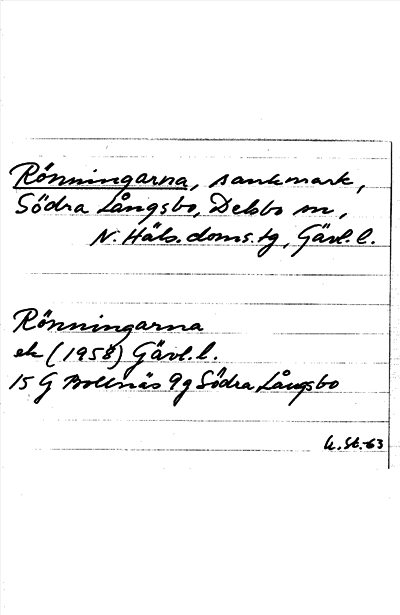 Rönningarna, sankmark,
Södra Långsbo, Delsbo sn,
N. Häls. doms.tg, Gävl. l.
Rönningarna
ek (1958) Gävl. l.
15 G Bollnäs 9g Södra Långsbo
U. St.-63